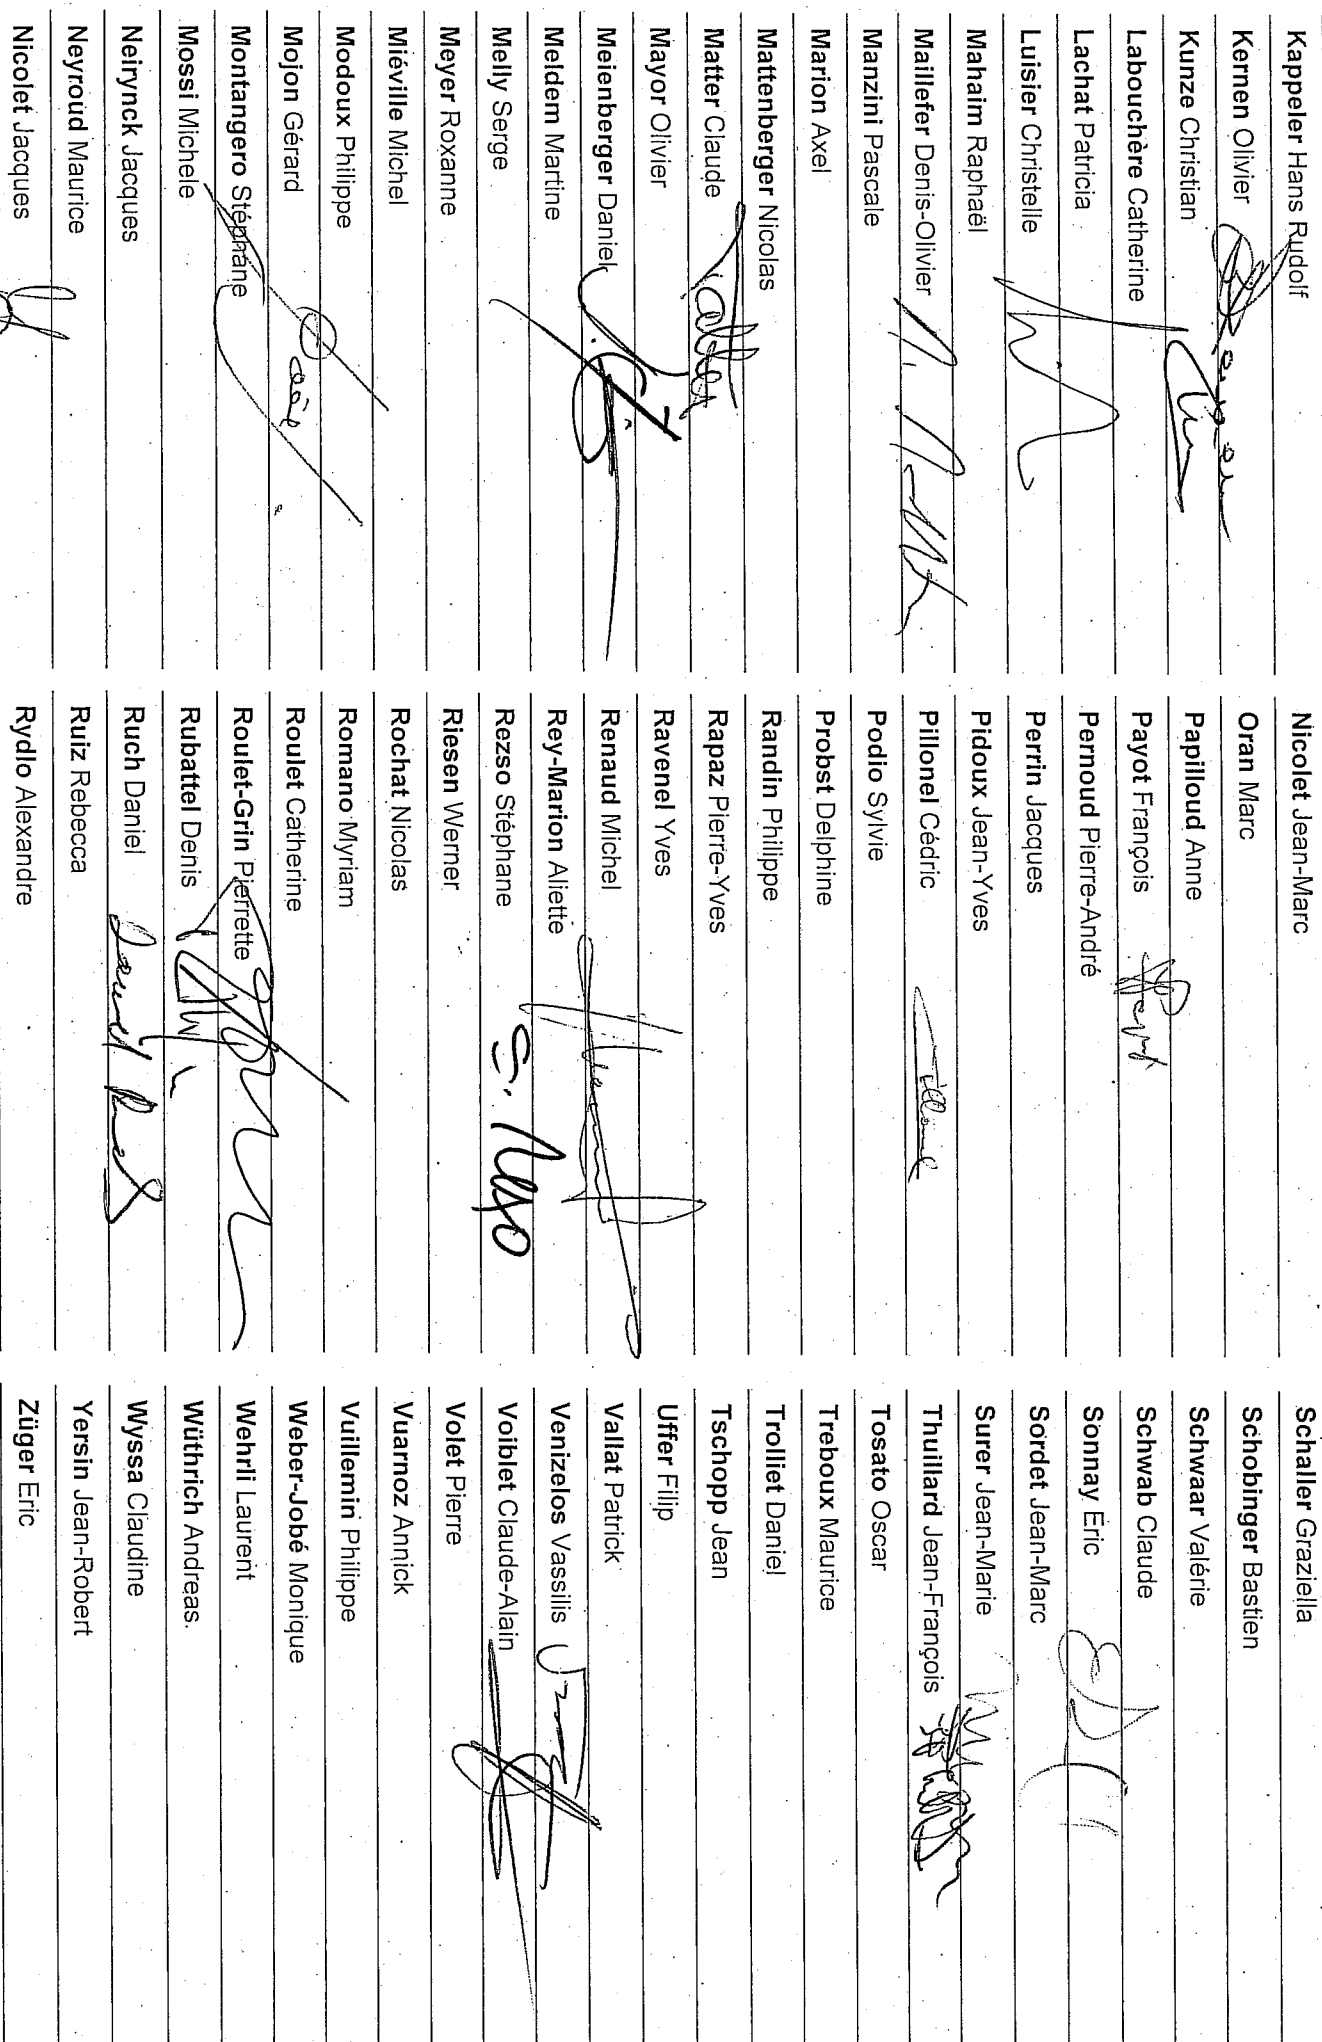 Kappeler Hans Rudolf
Kernen Olivier
Kunze Christian
Labouchère Catherine
Lachat Patricia
Luisier Christelle
Mahaim Raphaël
Maillefer Denis-Olivier
Manzini Pascale
Marion Axel
Mattenberger Nicolas
Matter Claude
Mayor Olivier
Meienberger Daniel
Meldem Martine
Melly Serge
Meyer Roxanne
Miéville Michel
Modoux Philippe
Mojon Gérard
Montangero Stéphane
Mossi Michele
Neirynck Jacques
Neyroud Maurice
Nicolet Jacques
Nicolet Jean-Marc
Oran Marc
Papilloud Anne
Payot François
Pernoud Pierre-André
Perrin Jacques
Pidoux Jean-Yves
Pillonel Cédric
Podio Sylvie
Probst Delphine
Randin Philippe
Rapaz Pierre-Yves
Ravenel Yves
Renaud Michel
Rey-Marion Aliette
Rezso Stéphane S. Rezso
Riesen Werner
Rochat Nicolas
Romano Myriam
Roulet Catherine
Roulet-Grin Pierrette
Rubattel Denis
Ruch Daniel
Ruiz Rebecca
Rydlo Alexandre
Schaller Graziella
Schobinger Bastien
Schwaar Valérie
Schwab Claude
Sonnay Eric
Sordet Jean-Marc
Surer Jean-Marie
Thuillard Jean-François
Tosato Oscar
Treboux Maurice
Trolliet Daniel
Tschopp Jean
Uffer Filip
Vallat Patrick
Venizelos Vassilis
Voiblet Claude-Alain
Volet Pierre
Vuarnoz Annick
Vuillemin Philippe
Weber-Jobé Monique
Wehrli Laurent
Wüthrich Andreas
Wyssa Claudine
Yersin Jean-Robert
Züger Eric